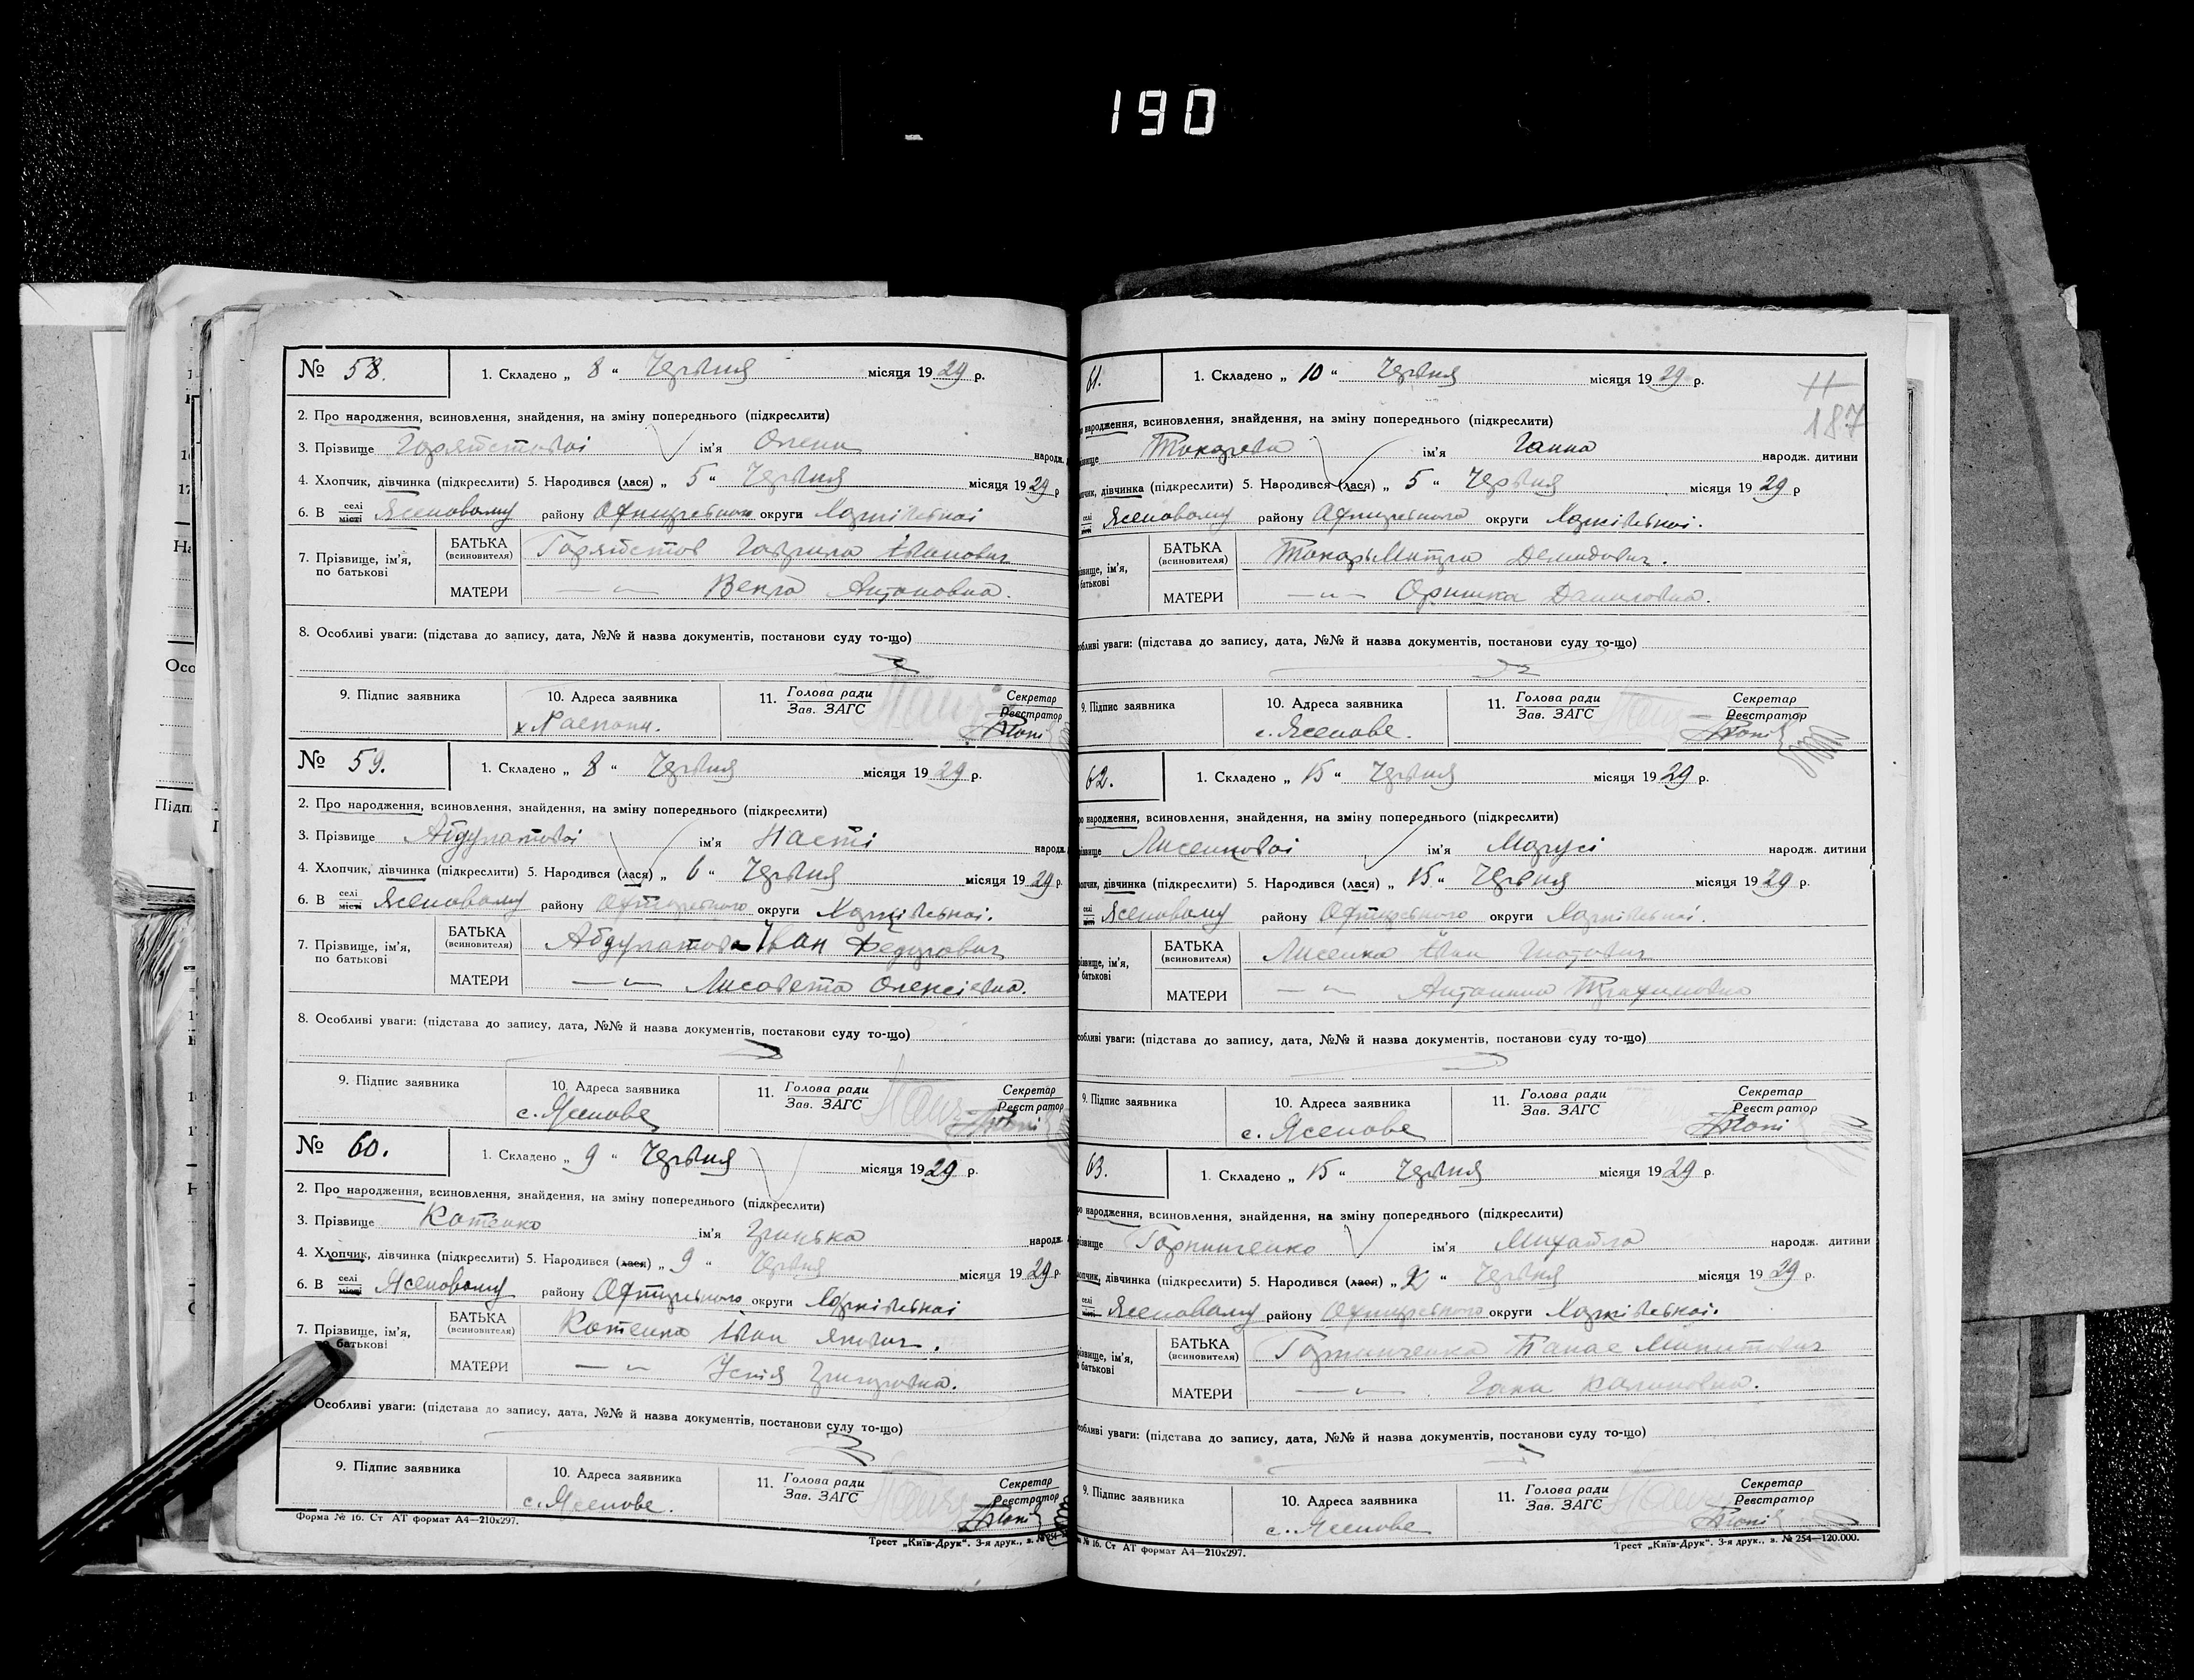 190
№ 58.
1. Складено „ 8 “ Червня місяця 1929 р.
2. Про народження, всиновлення, знайдення, на зміну попереднього (підкреслити)
3. Прізвище ім'я Олени народж.
4. Хлопчик, дівчинка (підкреслити) 5. Народився (лася) „ 5 “ Червня місяця 1929 р
6. В селі місті Ясеновому району округи Харківської
7. Прізвище, ім'я, по батькові
БАТЬКА (всиновителя) Гаврило Іванович
МАТЕРИ — „ — Векла Антоновна.
8. Особливі уваги: (підстава до запису, дата, №№ й назва документів, постанови суду то-що)
9. Підпис заявника 10. Адреса заявника 11. Голова ради Зав. ЗАГС Секретар Реєстратор
№ 59.
1. Складено „ 8 “ Червня місяця 1929 р.
2. Про народження, всиновлення, знайдення, на зміну попереднього (підкреслити)
3. Прізвище Абдулатової ім'я Насті народж.
4. Хлопчик, дівчинка (підкреслити) 5. Народився (лася) „ 6 “ Червня місяця 1929 р.
6. В селі місті Ясеновому району округи Харківської.
7. Прізвище, ім'я, по батькові
БАТЬКА (всиновителя) Абдулатов Іван Федорович
МАТЕРИ — „ — Лисавета Олексіевна.
8. Особливі уваги: (підстава до запису, дата, №№ й назва документів, постакови суду то-що)
9. Підпис заявника 10. Адреса заявника 11. Голова ради Зав. ЗАГС Секретар Реєстратор
с. Ясенове
№ 60.
1. Складено „ 9 “ Червня місяця 1929 р.
2. Про народження, всиновлення, знайдення, на зміну попереднього (підкреслити)
3. Прізвище Котенко ім'я Гринька народж.
4. Хлопчик, дівчинка (підкреслити) 5. Народився (лася) „ 9 “ Червня місяця 1929 р
6. В селі місті Ясеновому району округи Харківської
7. Прізвище, ім'я, по батькові
БАТЬКА (всиновителя) Котенко Іван Якович.
МАТЕРИ — „ — Устія Григоровна.
Особливі уваги: (підстава до запису, дата, №№ й назва документів, постанови суду то-що)
9. Підпис заявника 10. Адреса заявника 11. Голова ради Зав. ЗАГС Секретар Реєстратор
с. Ясенове.
Форма № 16. Ст АТ формат А4—210х297.
Трест „Київ-Друк“. 3-я друк., з. №
61.
1. Складено „ 10 “ Червня місяця 1929 р.
187
народження, всиновлення, знайдення, на зміну попереднього (підкреслити)
Токарева ім'я Ганна народж. дитини
дівчинка (підкреслити) 5. Народився (лася) „ 5 “ Червня місяця 1929 р
Ясеновому району округи Харківської.
БАТЬКА (всиновителя) Токарь Митро Демидович.
МАТЕРИ — „ — Оришка Даниловна.
уваги: (підстава до запису, дата, №№ й назва документів, постанови суду то-що)
9. Підпис заявника 10. Адреса заявника 11. Голова ради Зав. ЗАГС Секретар Реєстратор
с. Ясенове.
62.
1. Складено „ 15 “ Червня місяця 1929 р.
народження, всиновлення, знайдення, на зміну попереднього (підкреслити)
Лисенкової ім'я Марусі народж. дитини
дівчинка (підкреслити) 5. Народився (лася) „ 15 “ Червня місяця 1929 р.
Ясеновому району округи Харківської.
БАТЬКА (всиновителя) Лисенко Іван
МАТЕРИ — „ — Антонина Трахимовна
уваги: (підстава до запису, дата, №№ й назва документів, постанови суду то-що)
9. Підпис заявника 10. Адреса заявника 11. Голова ради Зав. ЗАГС Секретар Реєстратор
с. Ясенове
63.
1. Складено „ 15 “ Червня місяця 1929 р.
народження, всиновлення, знайдення, на зміну попереднього (підкреслити)
Горпинченко ім'я Михайло народж. дитини
дівчинка (підкреслити) 5. Народився (лася) „ “ Червня місяця 1929 р.
Ясеновому району округи Харківської.
БАТЬКА (всиновителя) Горпинченко Панас Микитович
МАТЕРИ — „ — Гана Калиновна.
уваги: (підстава до запису, дата, №№ й назва документів, постанови суду то-що)
9. Підпис заявника 10. Адреса заявника 11. Голова ради Зав. ЗАГС Секретар Реєстратор
с. Ясенове
№ 16. Ст АТ формат А4—210х297.
Трест „Київ-Друк“. 3-я друк., з. № 254—120.000.